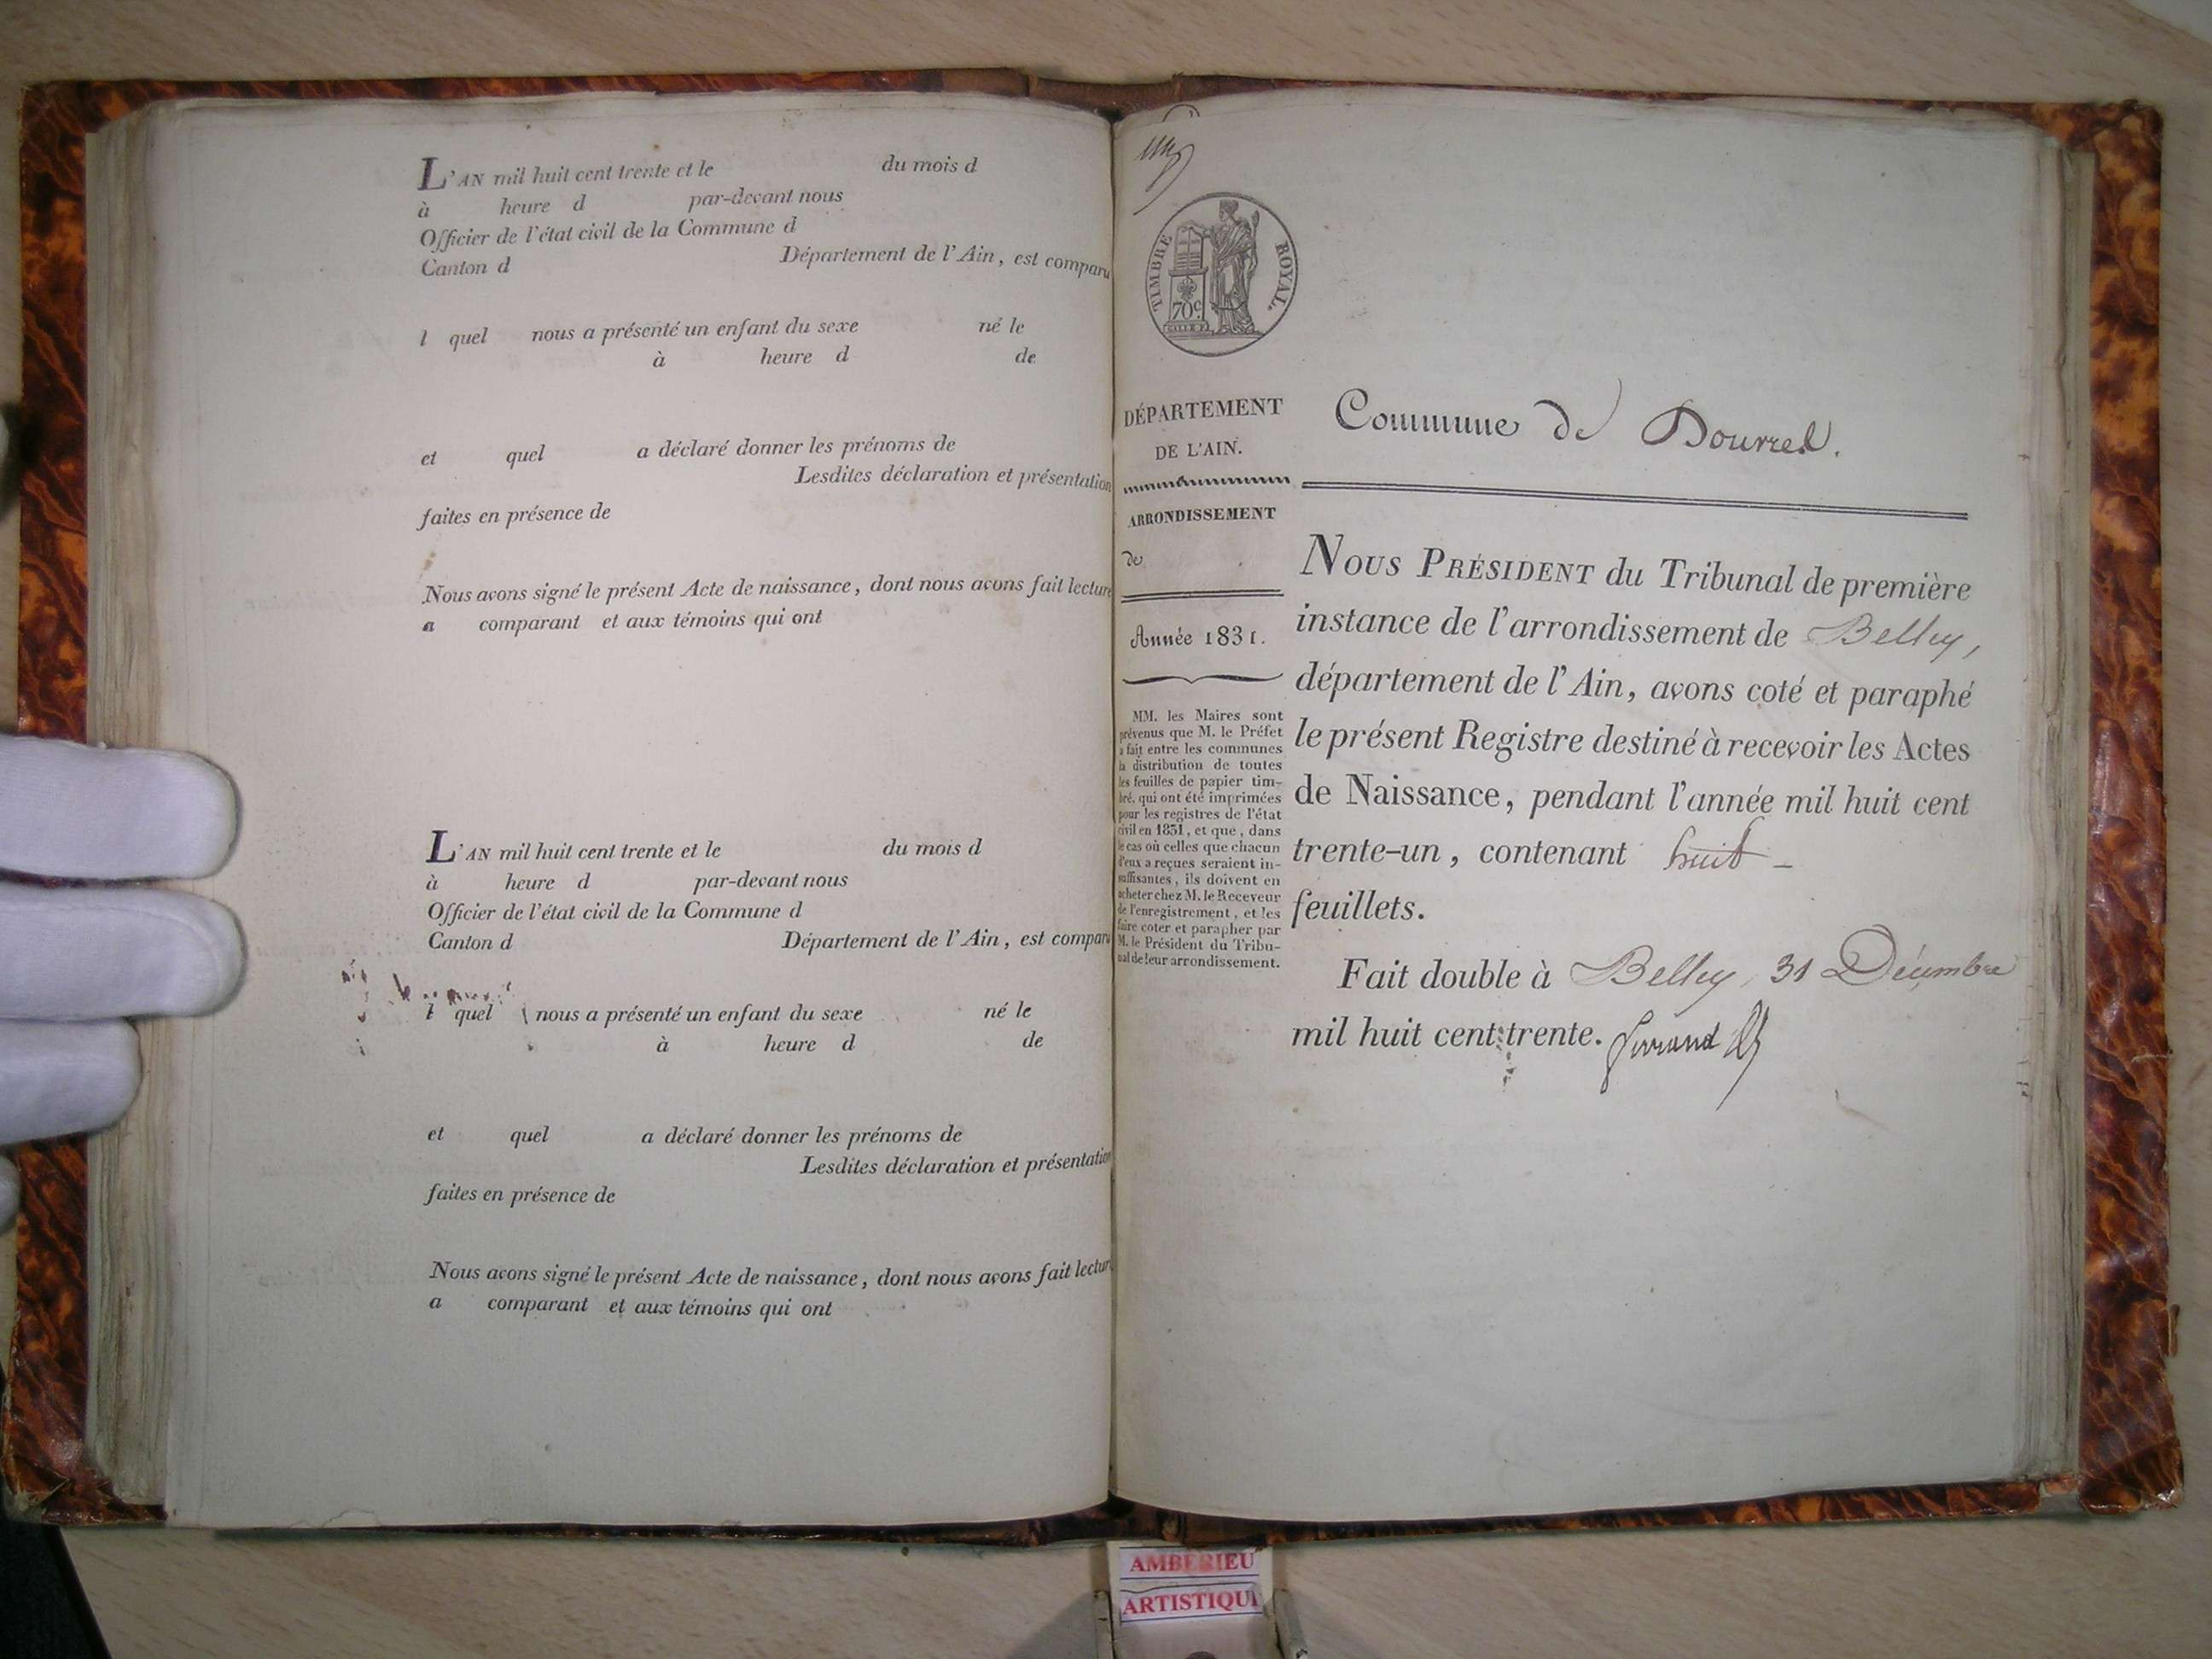 L'AN mil huit cent trente et le du mois d
à heure d par-devant nous
Officier de l'état civil de la Commune d
Canton d Département de l'Ain, est comparu
l quel nous a présenté un enfant du sexe né le
à heure d de
et quel a déclaré donner les prénoms de
Lesdites déclaration et présentation
faites en présence de
Nous avons signé le présent Acte de naissance, dont nous avons fait lecture
a comparant et aux témoins qui ont
L'AN mil huit cent trente et le du mois d
à heure d par-devant nous
Officier de l'état civil de la Commune d
Canton d Département de l'Ain, est comparu
l quel nous a présenté un enfant du sexe né le
à heure d de
et quel a déclaré donner les prénoms de
Lesdites déclaration et présentation
faites en présence de
Nous avons signé le présent Acte de naissance, dont nous avons fait lecture
a comparant et aux témoins qui ont
TIMBRE ROYAL.
70c.
DÉPARTEMENT
DE L'AIN.
ARRONDISSEMENT
de
Année 1831.
MM. les Maires sont
prévenus que M. le Préfet
a fait entre les communes
la distribution de toutes
les feuilles de papier tim-
bré, qui ont été imprimées
pour les registres de l'état
civil en 1831, et que, dans
le cas où celles que chacun
d'eux a reçues seraient in-
suffisantes, ils doivent en
acheter chez M. le Receveur
de l'enregistrement, et les
faire coter et parapher par
M. le Président du Tribu-
nal de leur arrondissement.
Commune de Dourel.
NOUS PRÉSIDENT du Tribunal de première
instance de l'arrondissement de Belley,
département de l'Ain, avons coté et paraphé
le présent Registre destiné à recevoir les Actes
de Naissance, pendant l'année mil huit cent
trente-un, contenant huit -
feuillets.
Fait double à Belley, 31 Décembre
mil huit cent trente.
AMBERIEU
ARTISTIQUE